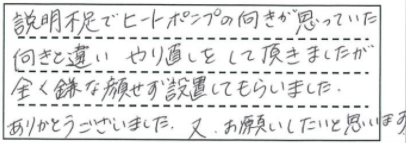 説明不足でヒートポンプの向きが思っていた
向きと違い やり直しをして頂きましたが
全く嫌な顔せず設置してもらいました.
ありがとうございました. 又. お願いしたいと思います